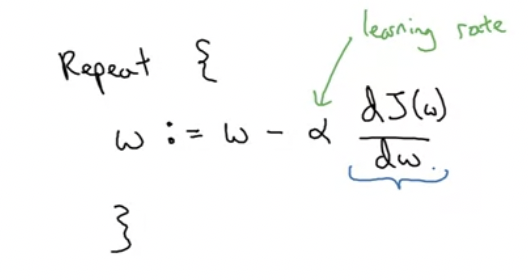 learning rate
Repeat {
w := w - α dJ(w)/dw
}